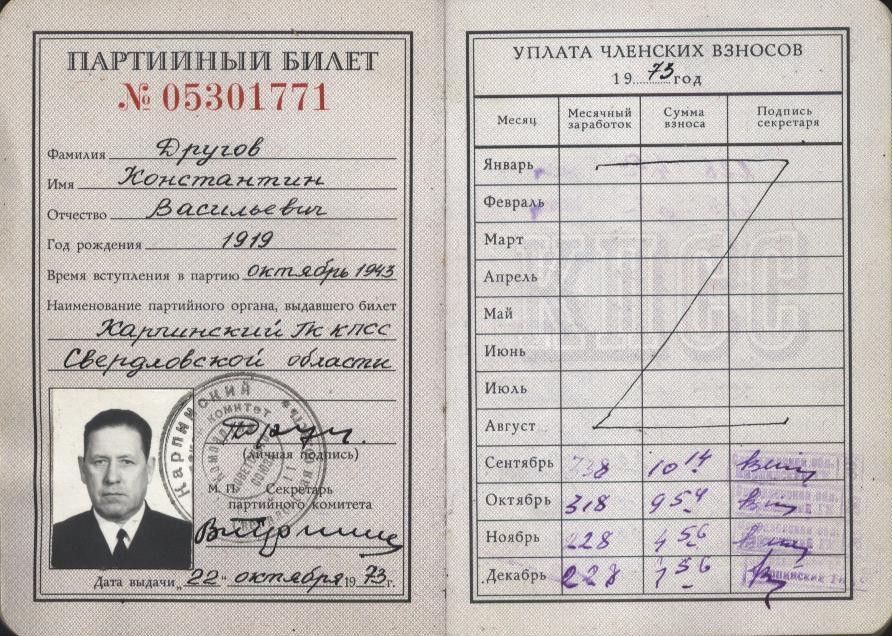 ПАРТИЙНЫЙ БИЛЕТ
№ 05301771
Фамилия Другов
Имя Константин
Отчество Васильевич
Год рождения 1919
Время вступления в партию октябрь 1943
Наименование партийного органа, выдавшего билет
Карпинский ГК КПСС
Свердловской области
(личная подпись)
М. П. Секретарь
партийного комитета
Дата выдачи „22“ октября 1973 г.
КАРПИНСКИЙ
КОМИТЕТ
УПЛАТА ЧЛЕНСКИХ ВЗНОСОВ
1973 год
Месяц Месячный заработок Сумма взноса Подпись секретаря
Январь
Февраль
Март
Апрель
Май
Июнь
Июль
Август
Сентябрь 738 10 14
Октябрь 318 9 54
Ноябрь 228 4 56
Декабрь 228 56
КПСС